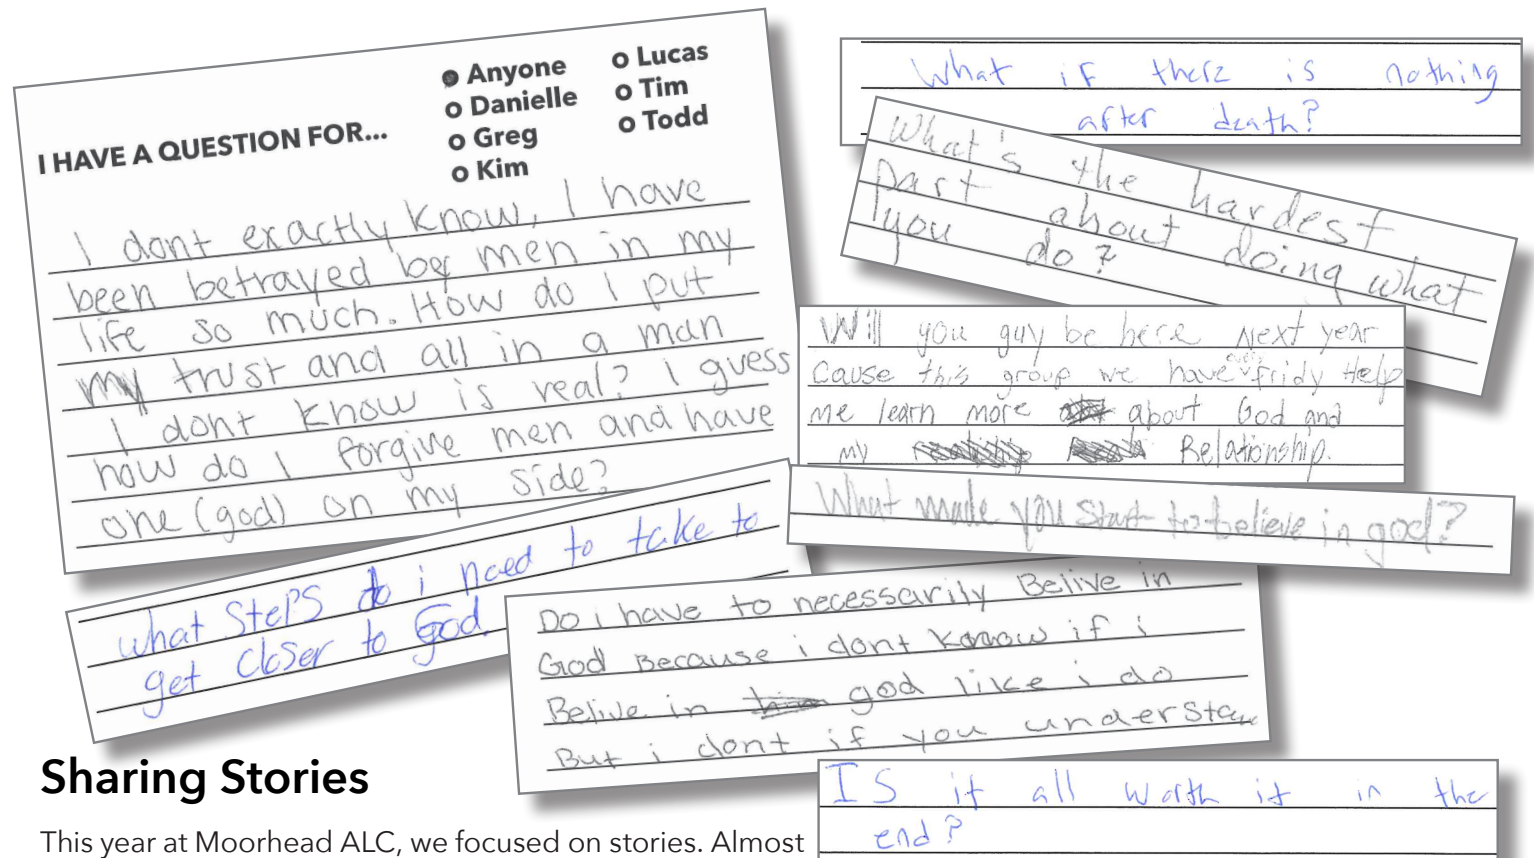 I HAVE A QUESTION FOR...
Anyone
Danielle
Greg
Kim
Lucas
Tim
Todd
I dont exactly know, I have
been betrayed by men in my
life so much. How do I put
my trust and all in a man
I dont know is real? I guess
how do I forgive men and have
one (god) on my side?
What if there is nothing
after death?
What's the hardest
part about doing what
you do?
Will you guy be here Next year
Cause this group we have every fridy Help
me learn more about God and
my Relationship.
What made you start to believe in god?
what steps do i need to take to
get closer to God.
Do i have to necessarily Belive in
God Because i dont know if i
Belive in god like i do
But i dont if you understa
Is it all worth it in the
end?
Sharing Stories
This year at Moorhead ALC, we focused on stories. Almost